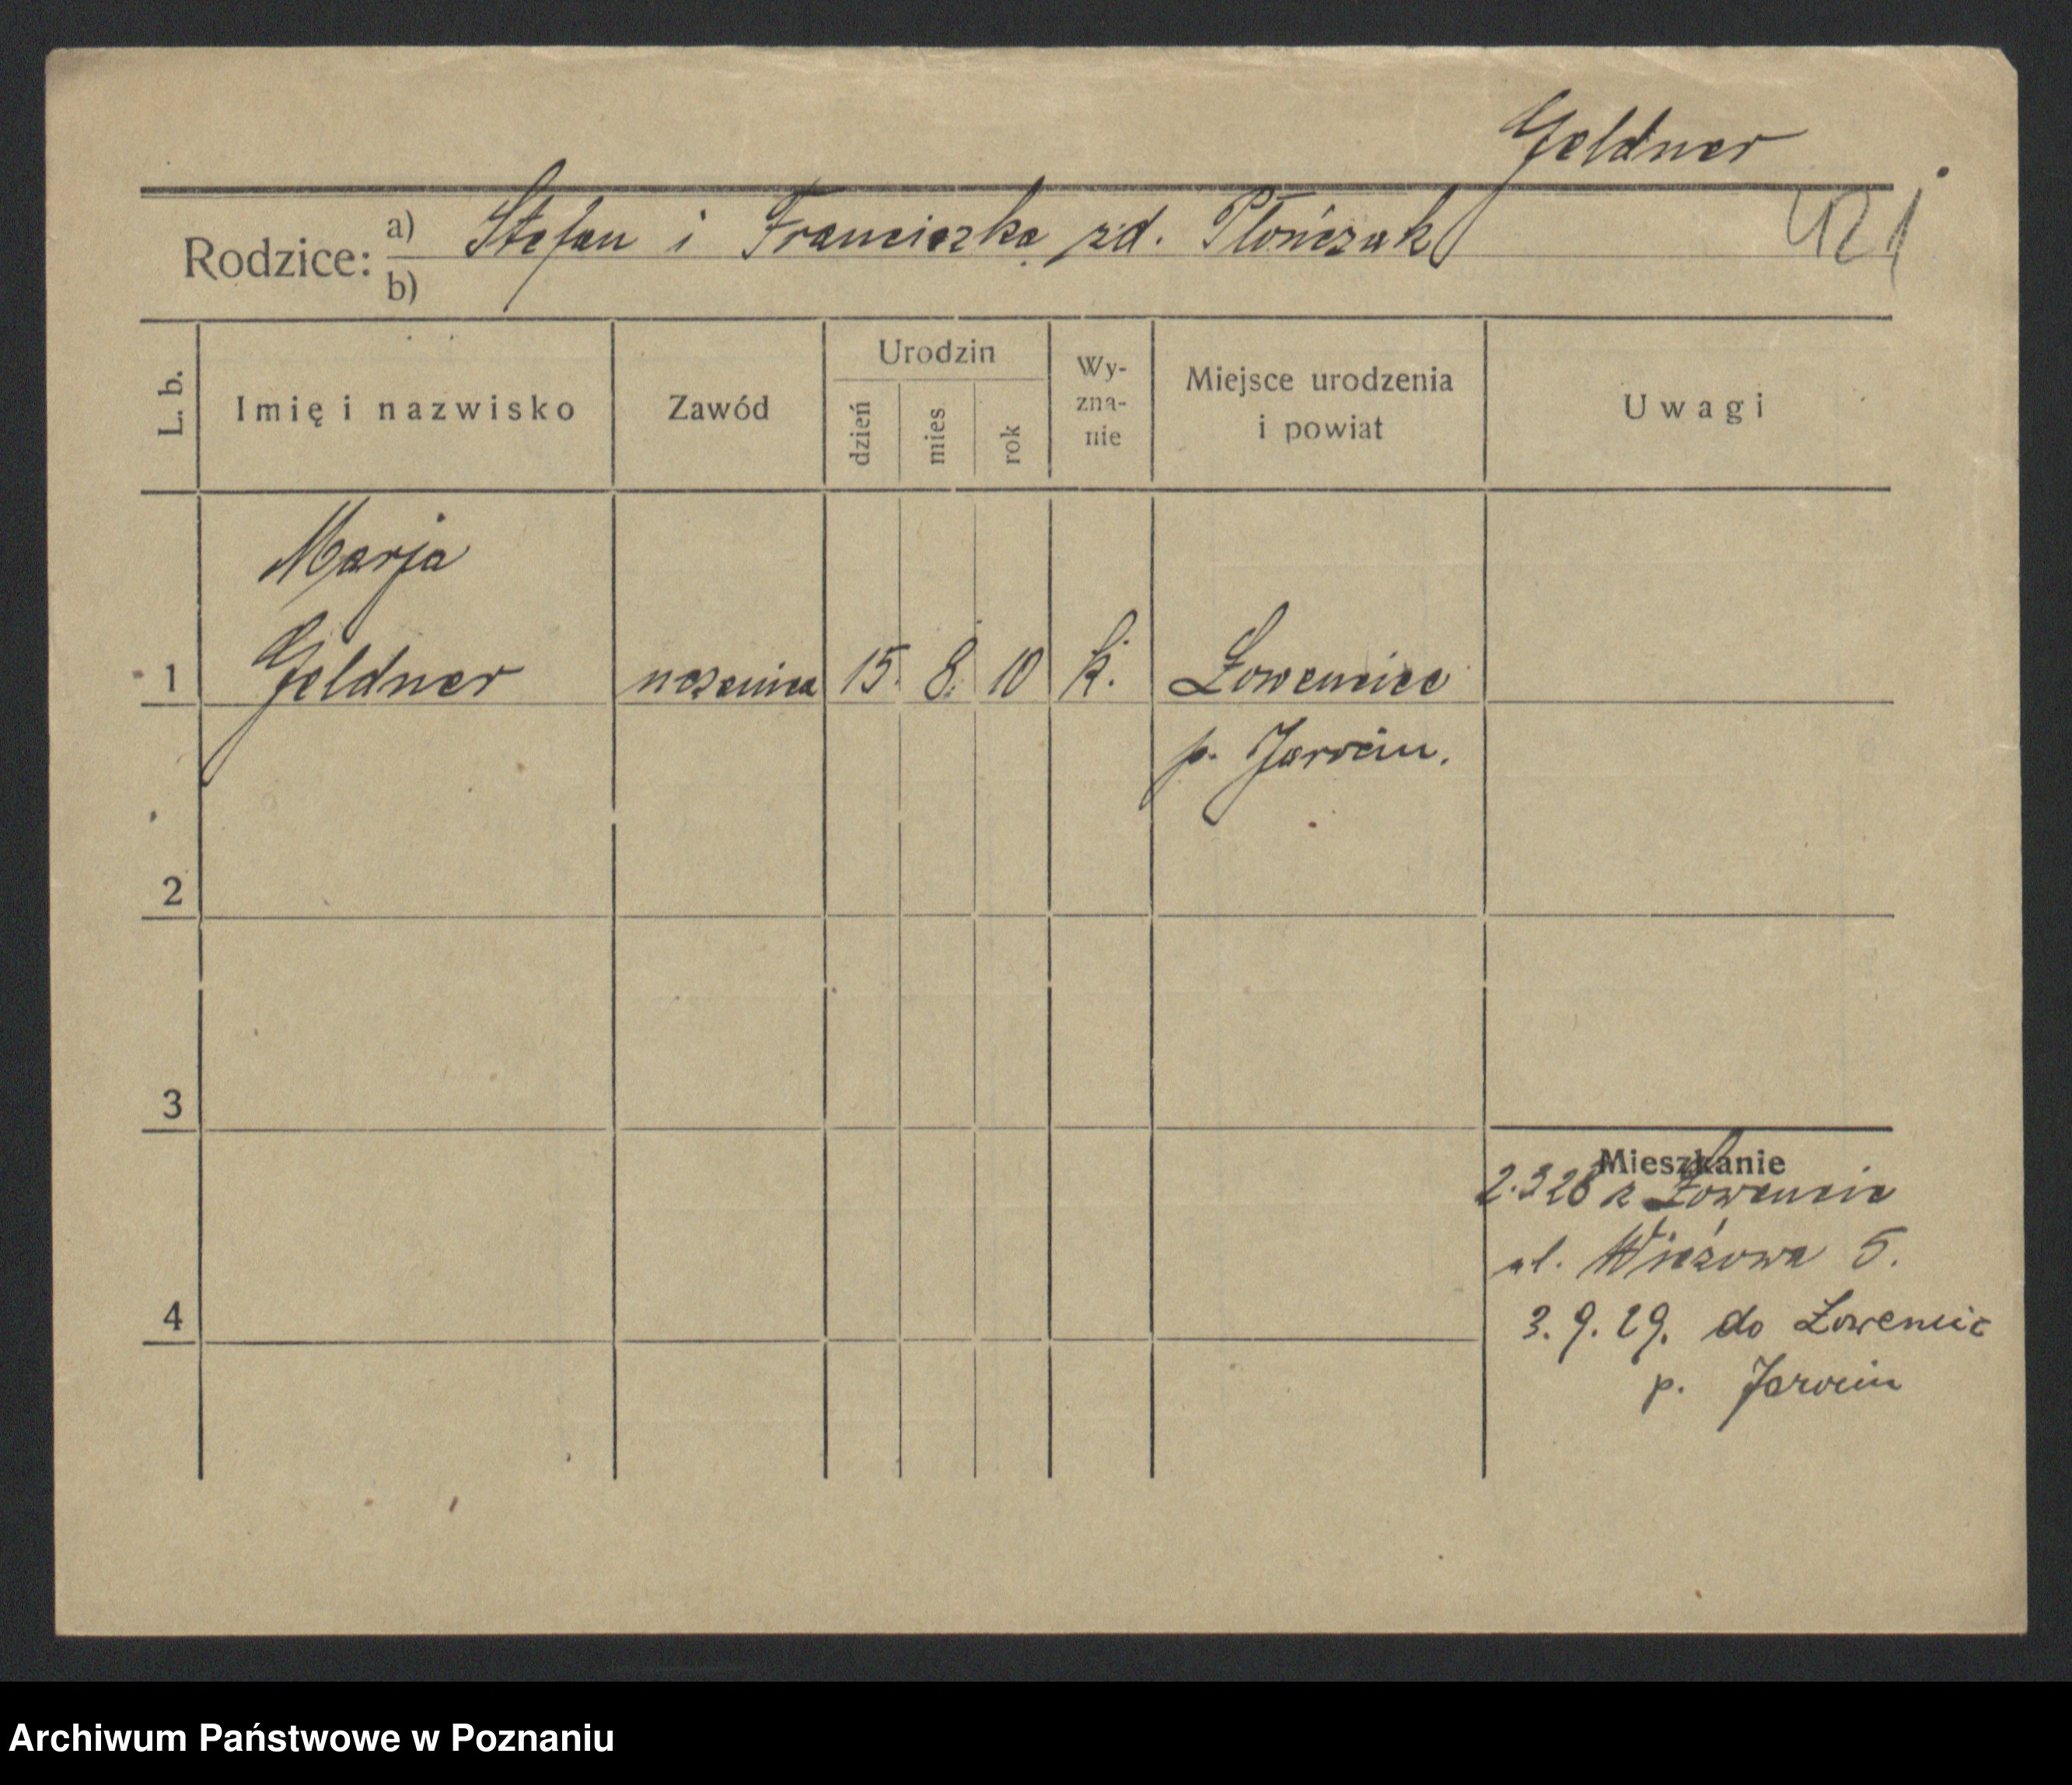 Geldner
421
Rodzice: a) Stefan i Franciszka zd. Płończak
b)
L. b.
Imię i nazwisko
Zawód
Urodzin
dzień
mies
rok
Wy-
zna-
nie
Miejsce urodzenia
i powiat
Uwagi
Marja
1 Geldner uczenica 15. 8. 10 k. Łowencice
p. Jarocin.
2
3
4
Mieszkanie
2.9 28 z Łowencic
ul. Wieżowa 5.
3. 9. 29. do Łowencic
p. Jarocin
Archiwum Państwowe w Poznaniu